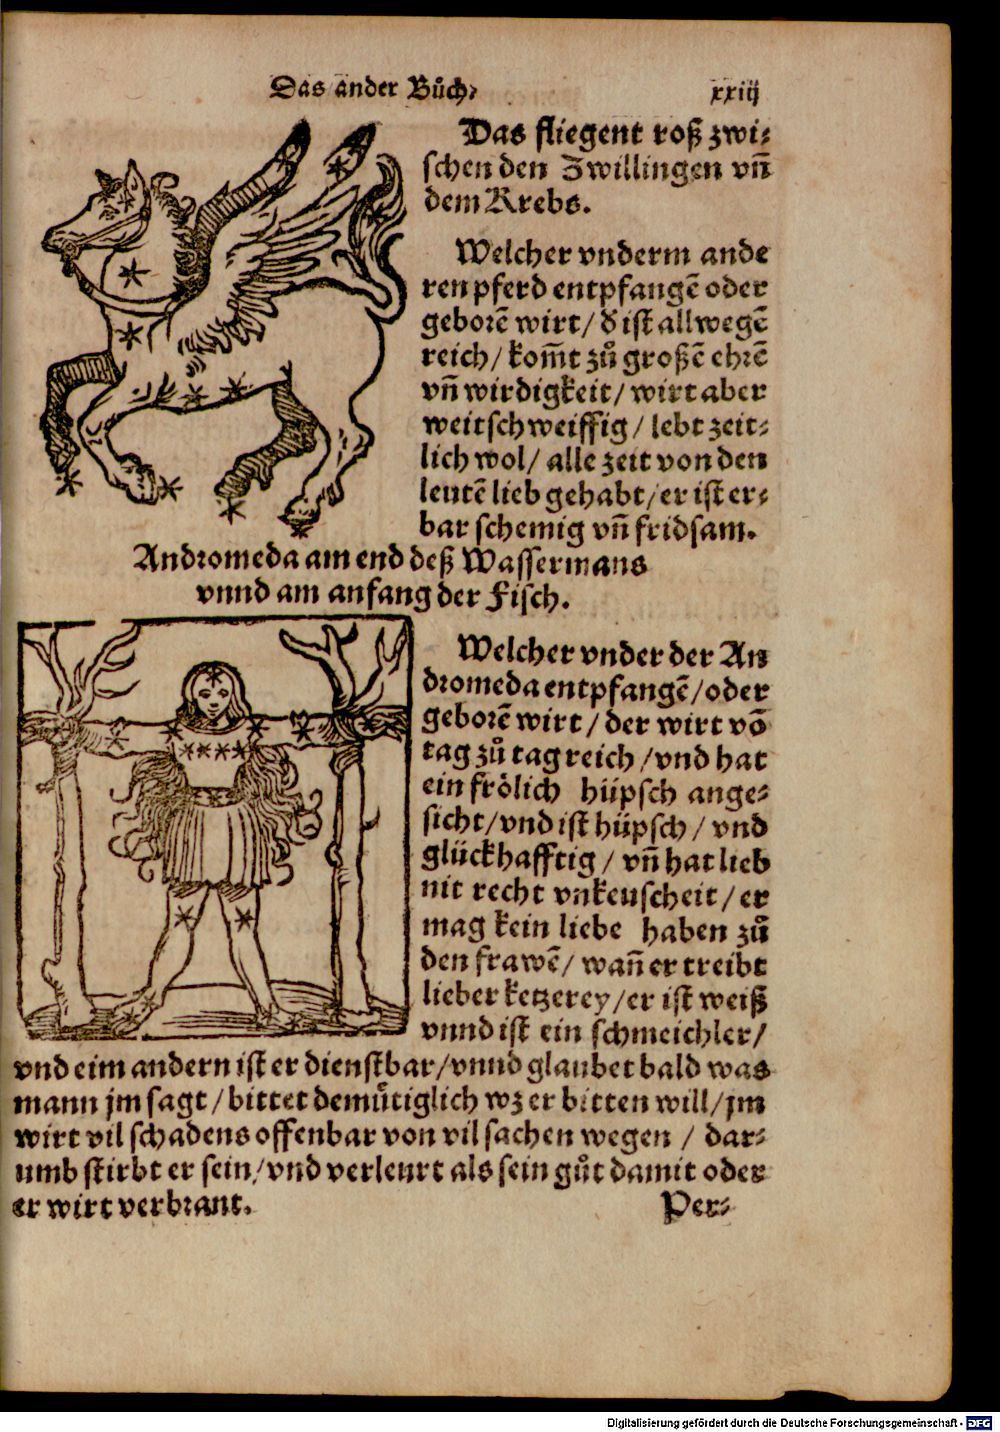 Das ander Bůch,
xxiij
Das fliegent roß zwi-
schen den Zwillingen vñ
dem Krebs.
Welcher vnderm ande
ren pferd entpfangẽ oder
geborẽ wirt / d ist allwegẽ
reich / kom̃t zů großẽ ehrẽ
vñ wirdigkeit / wirt aber
weitschweiffig / lebt zeit-
lich wol / alle zeit von den
leutẽ lieb gehabt / er ist er-
bar schemig vñ fridsam.
Andromeda am end deß Wassermans
vnnd am anfang der Fisch.
Welcher vnder der An
dromeda entpfangẽ / oder
geborẽ wirt / der wirt võ
tag zů tag reich / vnd hat
ein frölich hüpsch ange-
sicht / vnd ist hüpsch / vnd
glückhafftig / vñ hat lieb
nit recht vnkeuscheit / er
mag kein liebe haben zů
den frawẽ / wañ er treibt
lieber ketzerey / er ist weiß
vnnd ist ein schmeichler /
vnd eim andern ist er dienstbar / vnnd glaubet bald was
mann jm sagt / bittet demůtiglich wz er bitten will / jm
wirt vil schadens offenbar von vil sachen wegen / dar-
umb stirbt er sein / vnd verleurt als sein gůt damit oder
er wirt verbrant.
Per-
Digitalisierung gefördert durch die Deutsche Forschungsgemeinschaft - DFG